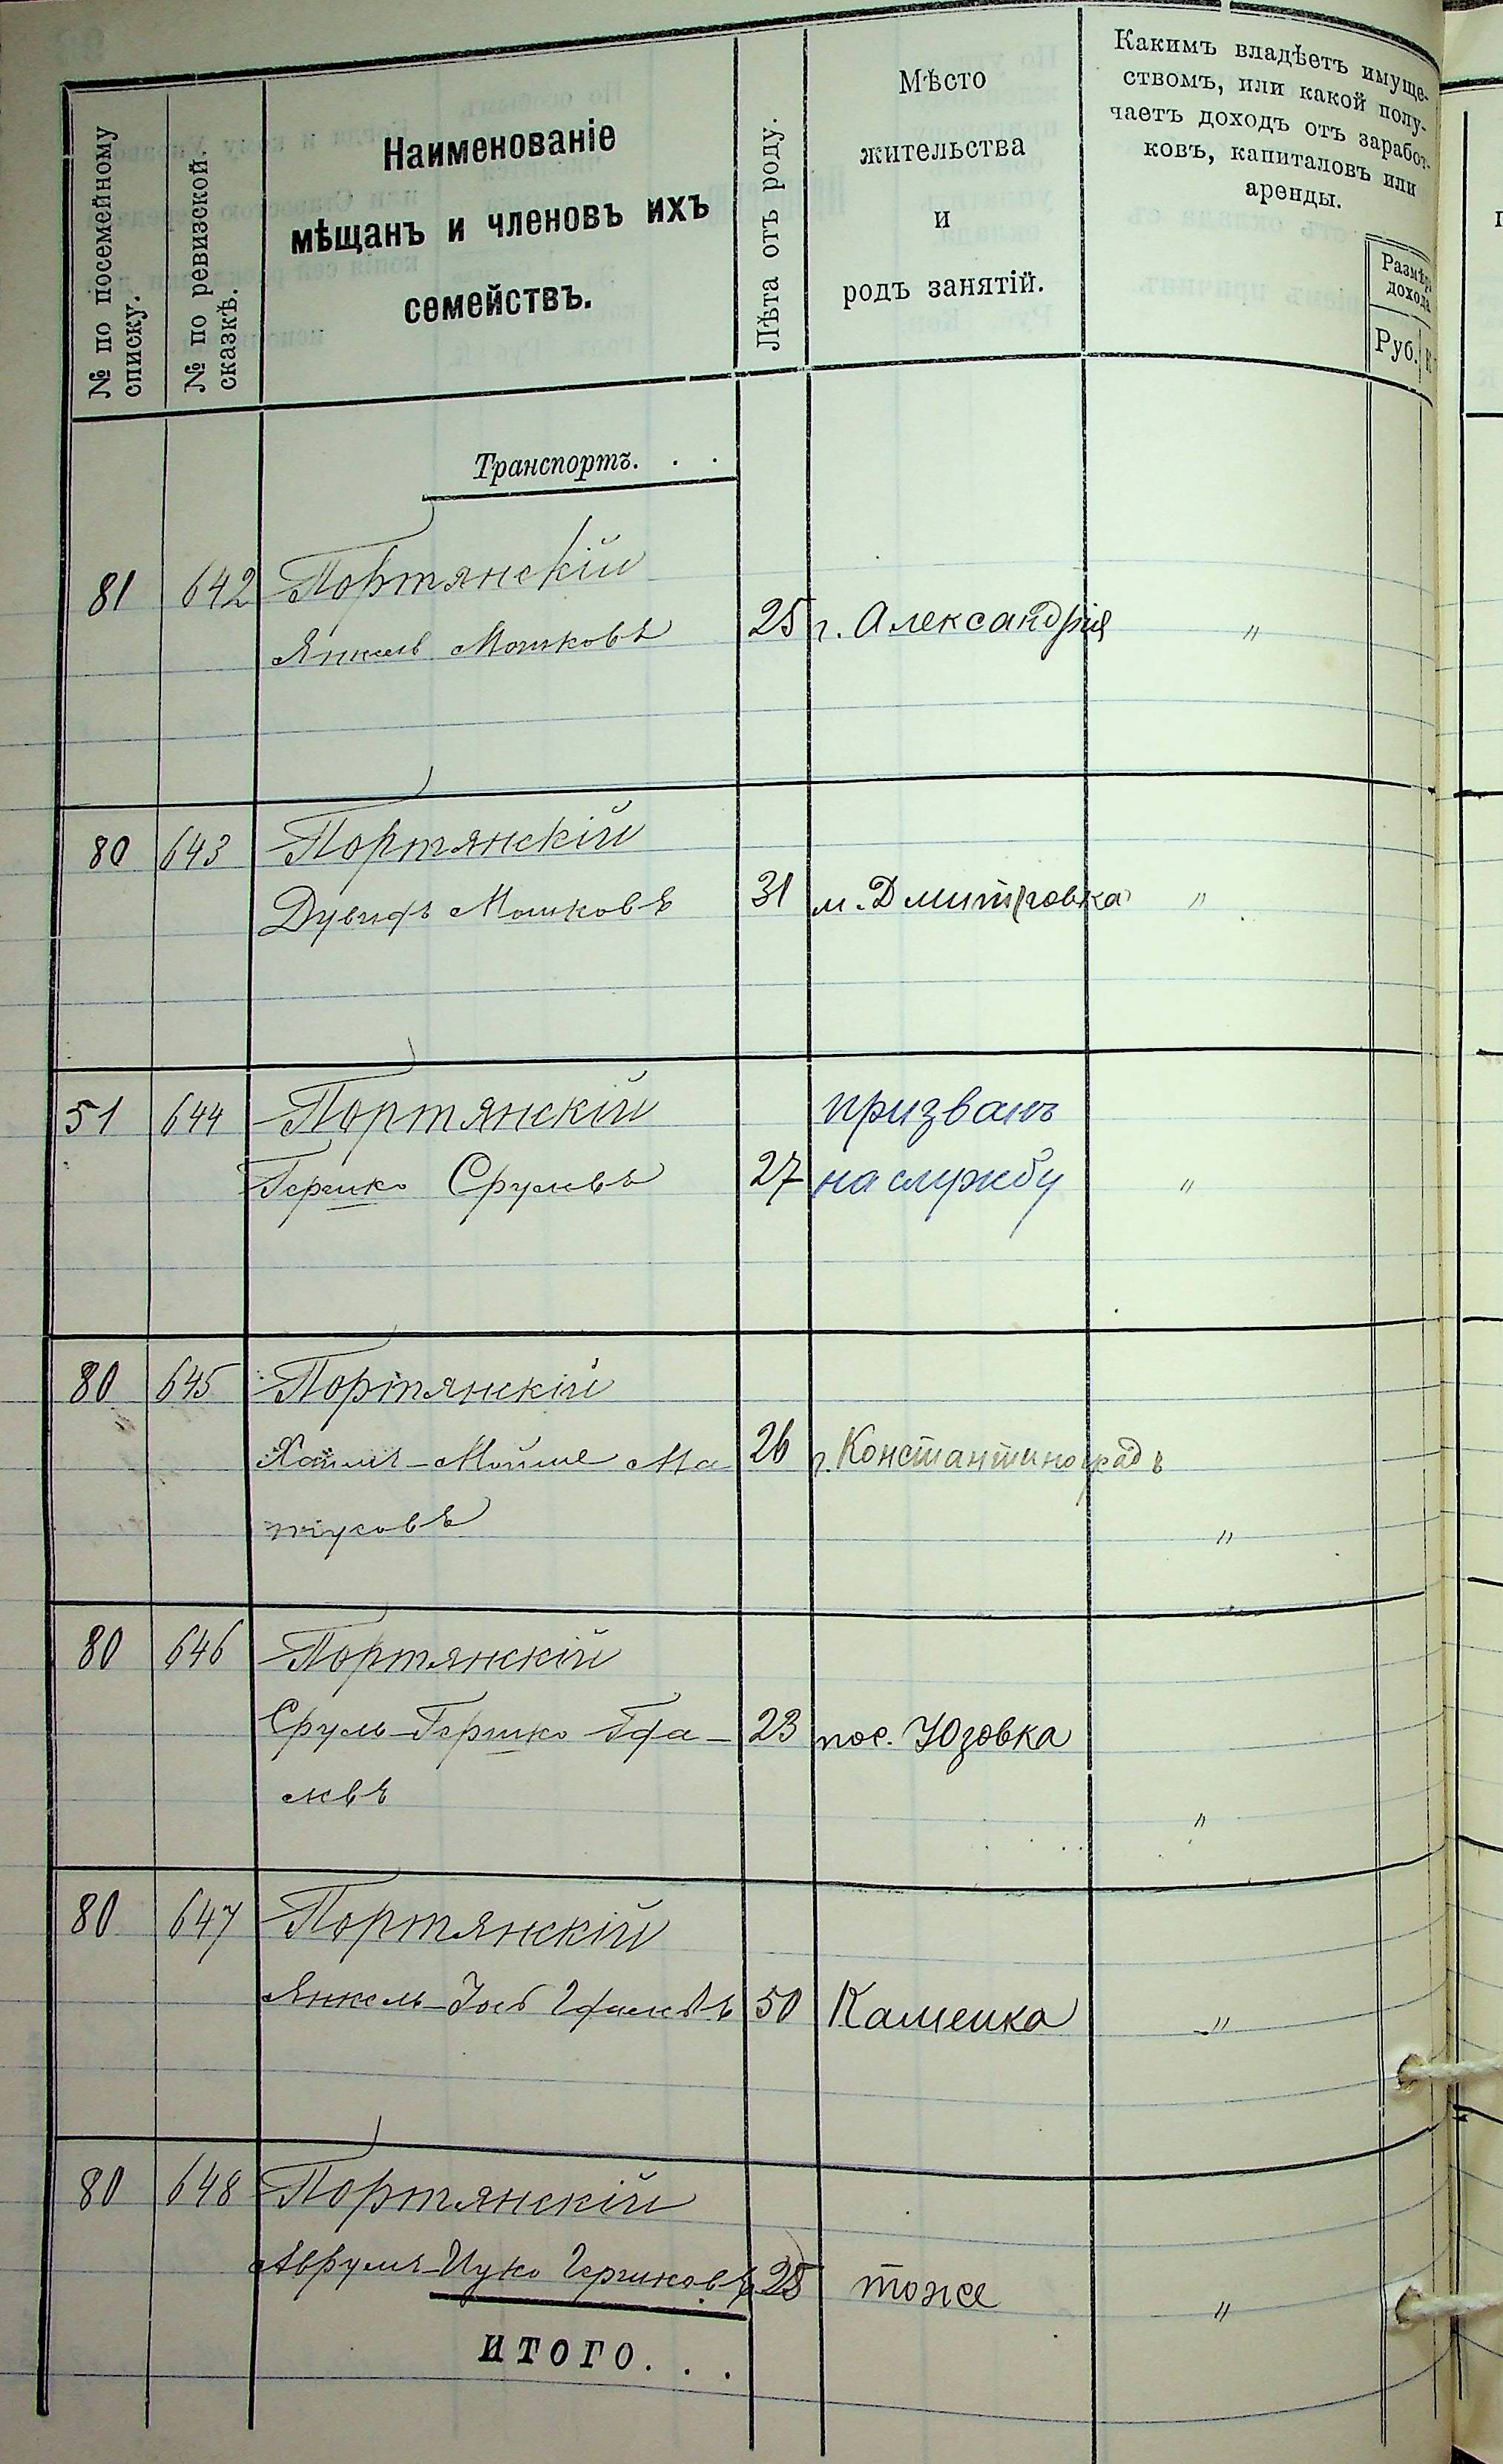 № по посемейному
списку.
№ по ревизской
сказкѣ.
Наименованіе
мѣщанъ и членовъ ихъ
семействъ.
Лѣта отъ роду.
Мѣсто
жительства
и
родъ занятій.
Какимъ владѣетъ имуще-
ствомъ, или какой полу-
чаетъ доходъ отъ заработ-
ковъ, капиталовъ или
аренды.
Размѣръ
дохода
Руб. К
Транспортъ. . .
81 642 Портянскій
Янкель Мошковъ 25 г. Александрія "
80 643 Портянскій
Дувидъ Мошковъ 31 м. Дмитровка "
51 644 Портянскій призванъ
Гершко Срулевъ 27 на службу "
80 645 Портянскій
Хаимъ-Мойше Ма- 26 г. Константиноградъ
тусовъ "
80 646 Портянскій
Сруль-Гершко 23 пос. Юзовка
"
80 647 Портянскій
Янкель-Іосъ 50 Каменка "
80 648 Портянскій
Аврумъ-Ицко Гершковъ 25 тоже "
ИТОГО. . .